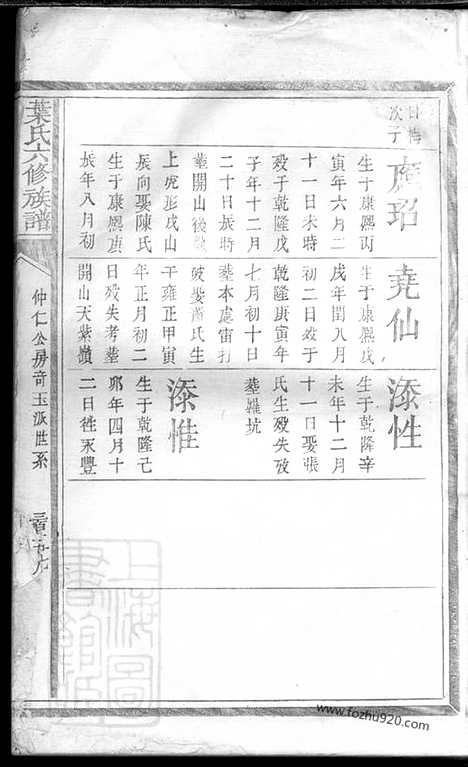 葉氏六修族譜
仲仁公房奇玉派世系
日梅
次子
虎玿
生于康熙丙
寅年六月二
十一日未時
殁于乾隆戊
子年十二月
二十日辰時
塟開山後
上虎形戌山
辰向娶陳氏
生于康熙庚
辰年八月初
堯仙
生于康熙戊
戌年閏八月
初二日殁于
乾隆庚寅年
七月初十日
塟本處雷打
破娶蕭氏生
于雍正甲寅
年正月初二
日殁失考塟
開山天紫嶺
添性
生于乾隆辛
未年十二月
十一日娶張
氏生殁失攷
塟羅坑
添惟
生于乾隆己
卯年四月十
二日徃永豐
上海圖書館藏
www.fozhu920.com